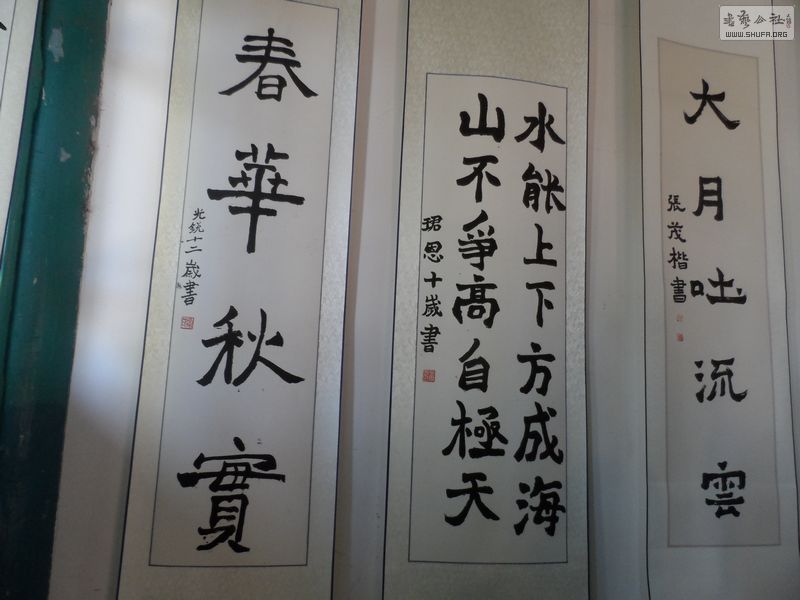 春華秋實
光銳十二歲書
水能上下方成海
山不爭高自極天
珺思十歲書
大月吐流雲
張茂楷書
書藝公社
WWW.SHUFA.ORG